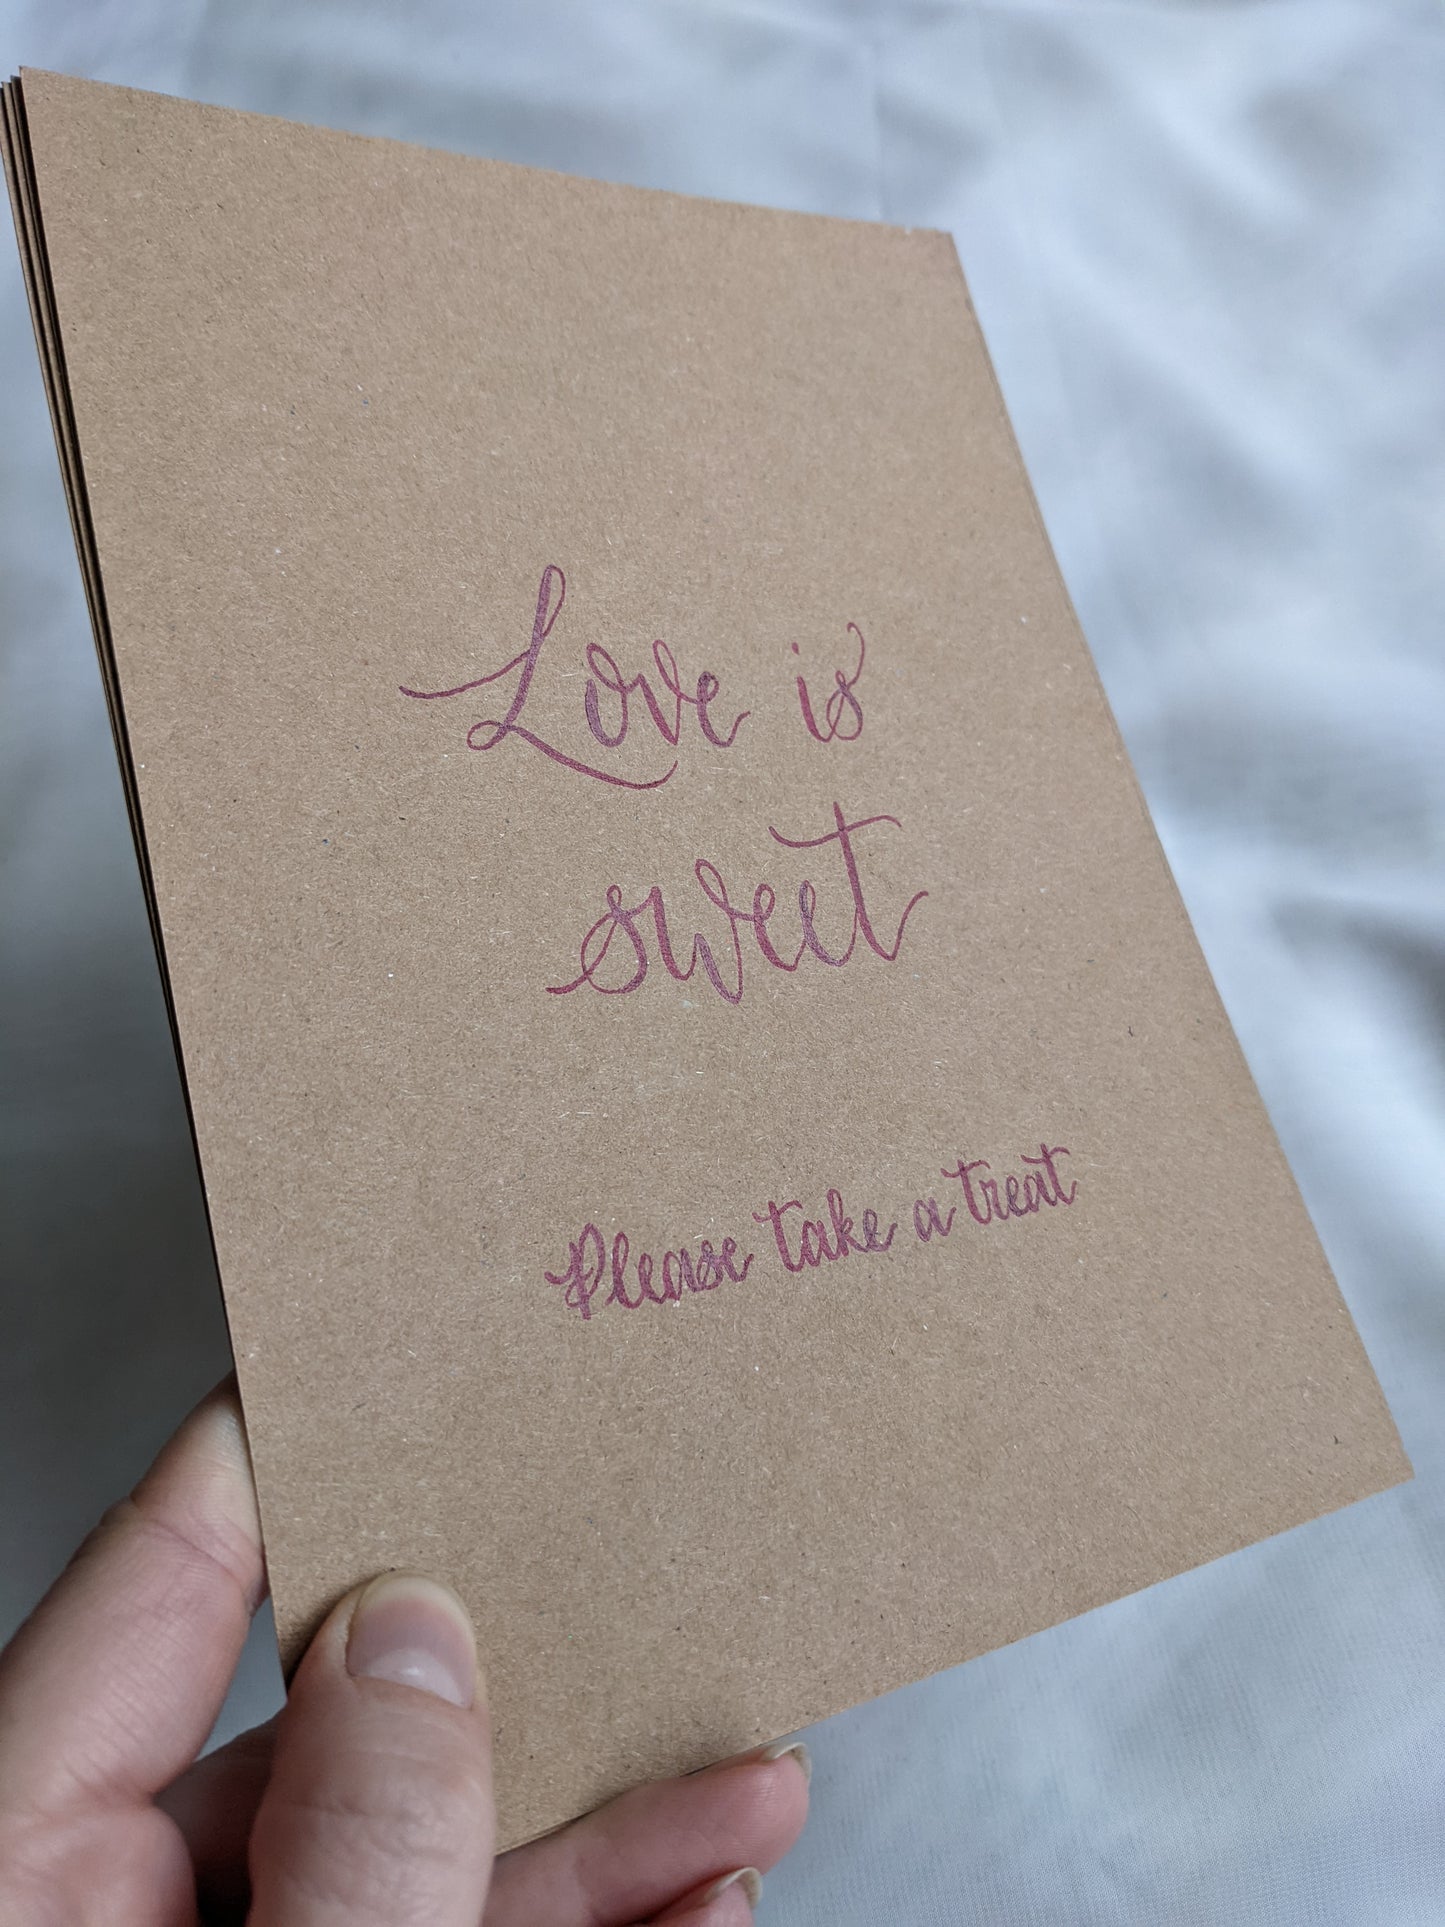 Love is
sweet
Please take a treat